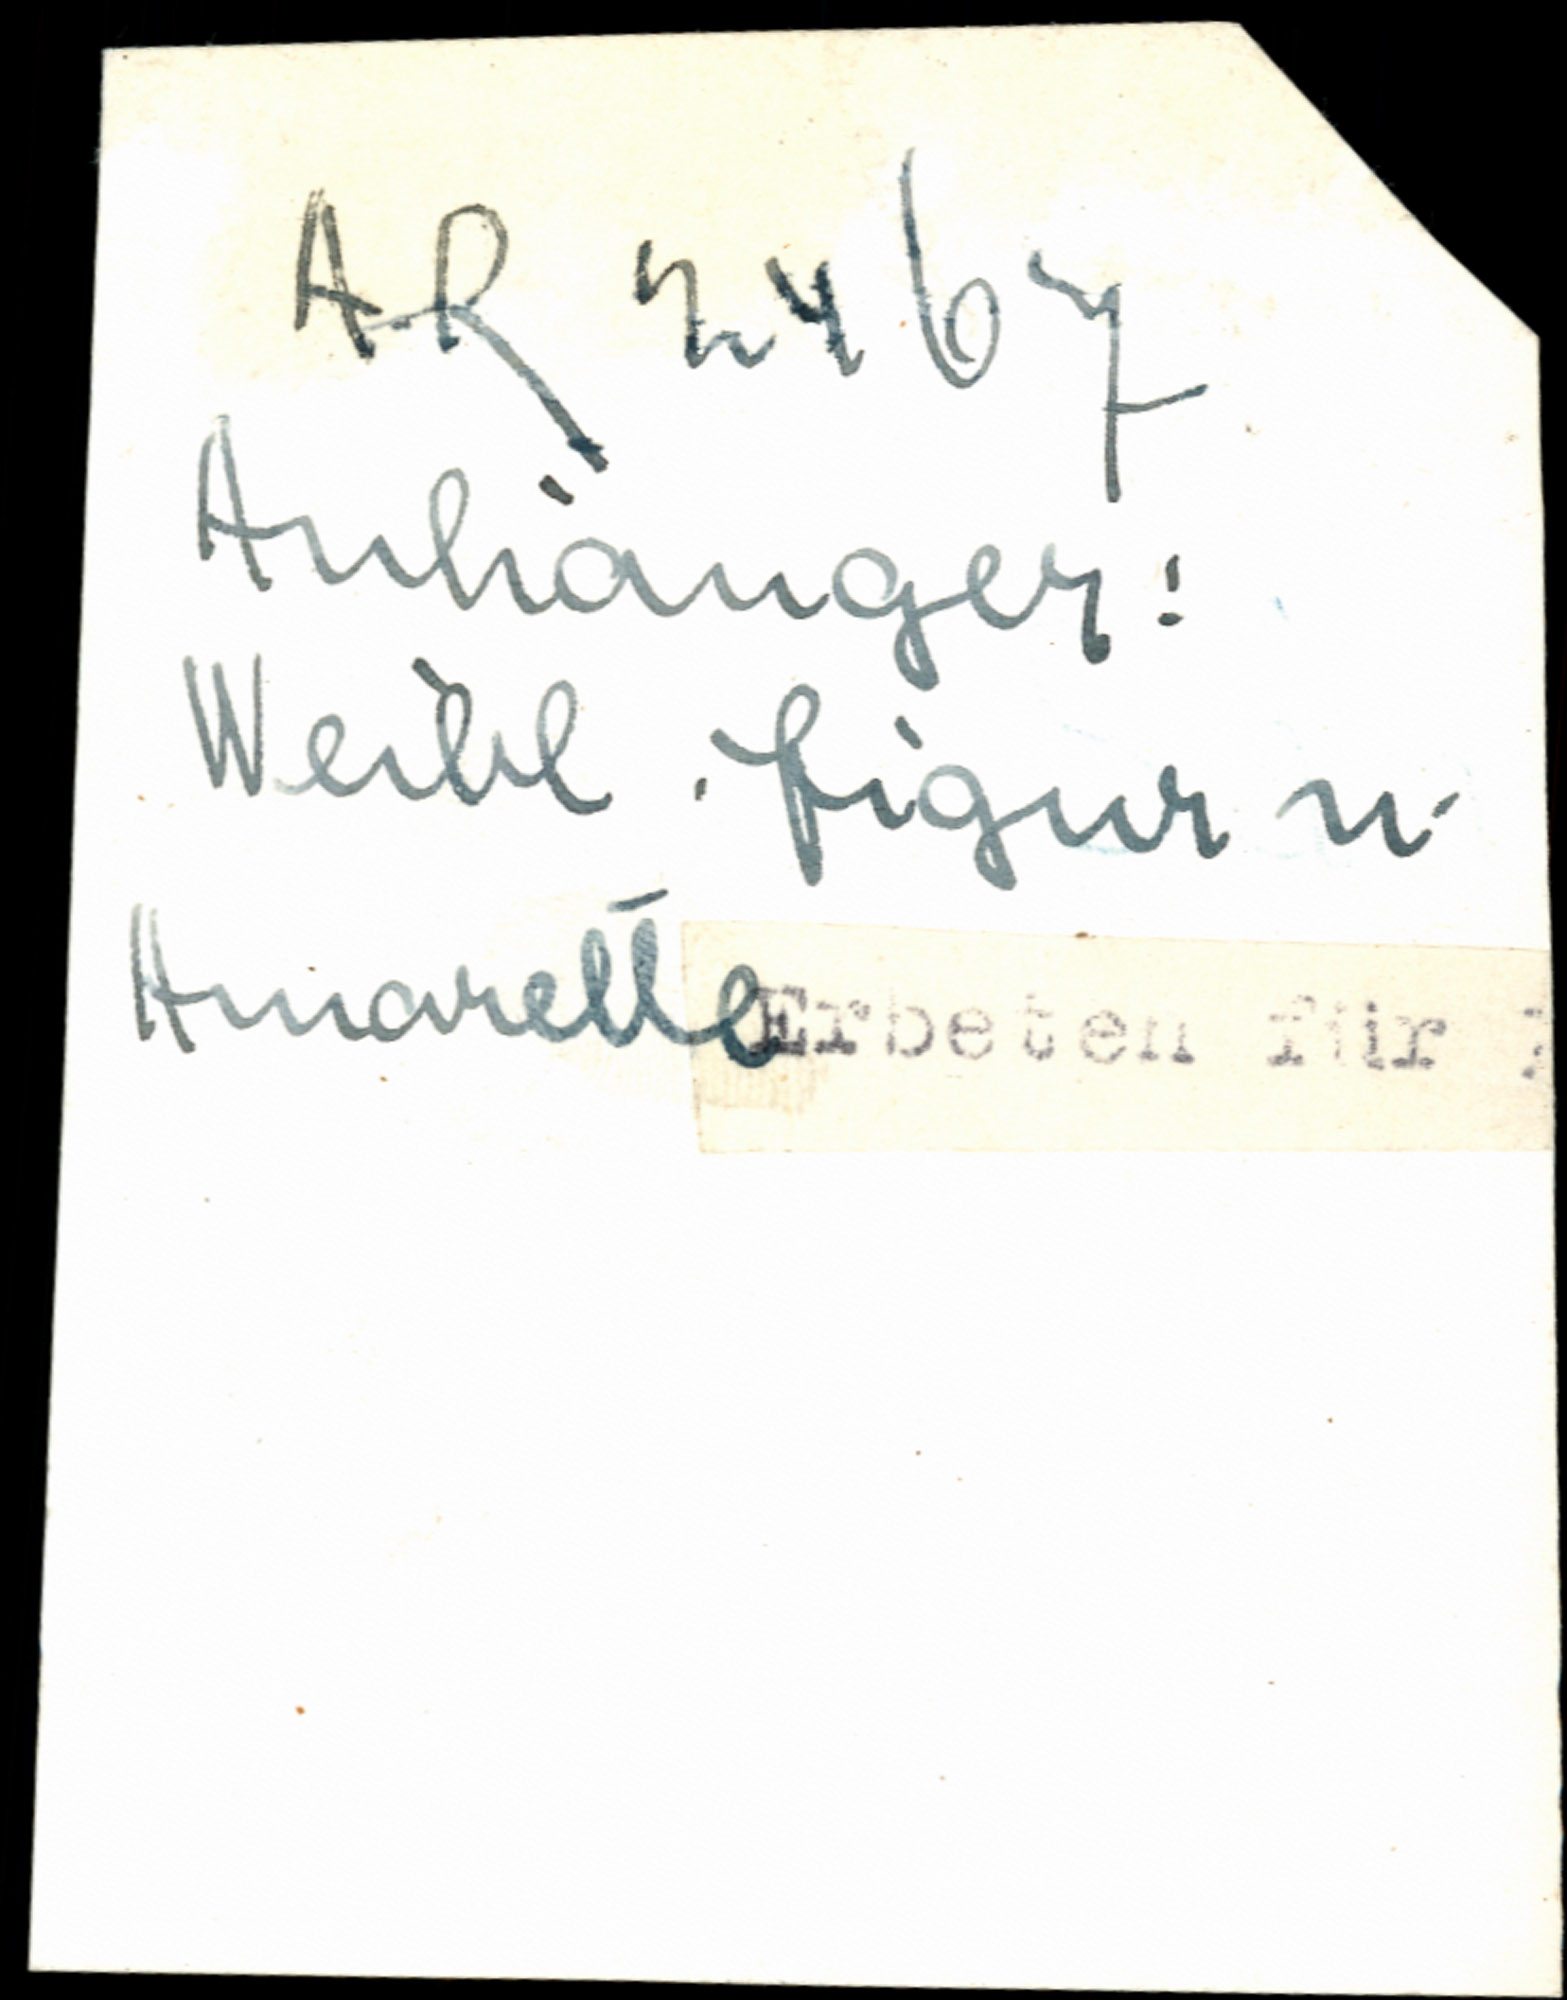 AR 2467
Anhänger:
Weibl. Figur u.
Amorette
Erbeten für